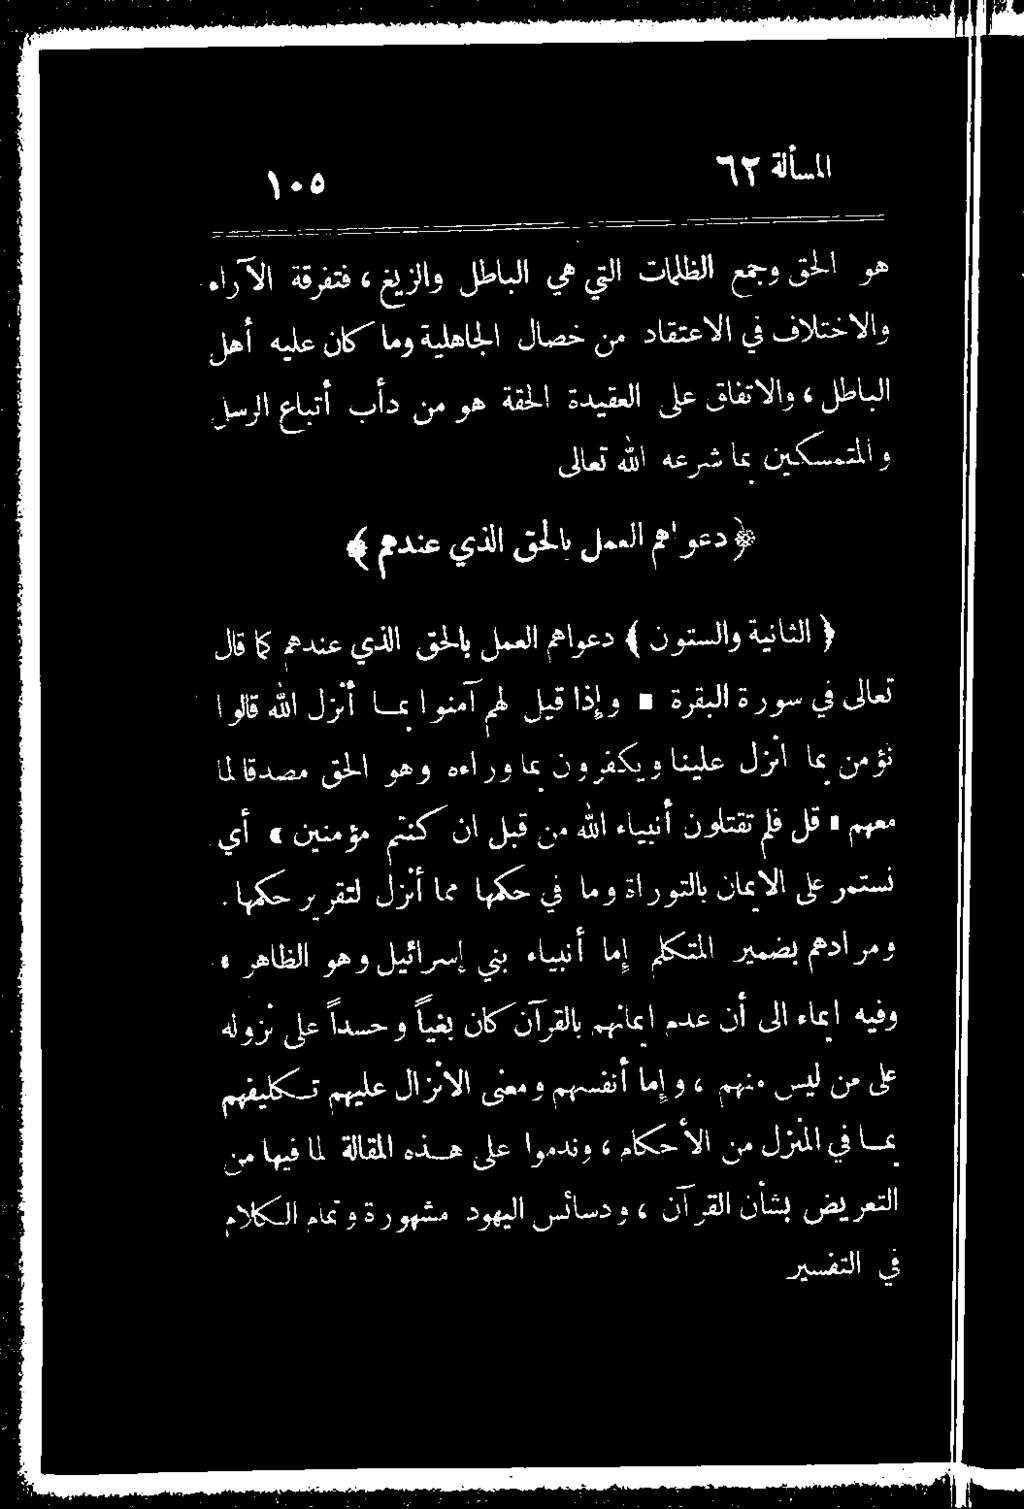 المسألة ٦٢ ١٠٥
هو الحق وجمع الظلمات التي هي الباطل والزيغ ، فتفرقة الآراء
والاختلاف في الاعتقاد من خصال الجاهلية وما كان عليه أهل
الباطل ، والاتفاق على العقيدة الحقة هو من دأب أتباع الرسل
والمتمسكين بما شرعه الله تعالى
﴿ دعواهم العمل بالحق الذي عندهم ﴾
﴿ الثانية والستون ﴾ دعواهم العمل بالحق الذي عندهم كما قال
تعالى في سورة البقرة « وإذا قيل لهم آمنوا بمـا أنزل الله قالوا
نؤمن بما أنزل علينا ويكفرون بما وراءه وهو الحق مصدقا لما
معهم * قل فلم تقتلون أنبياء الله من قبل ان كنتم مؤمنين » أي
نستمر على الايمان بالتوراة وما في حكمها مما أنزل لتقرير حكمها .
ومرادهم بضمير المتكلم إما أنبياء بني إسرائيل وهو الظاهر ،
وفيه ايماء الى أن عدم ايمانهم بالقرآن كان بغياً وحسداً على نزوله
على من ليس منهم ، وإما أنفسهم ومعنى الانزال عليهم تـكليفهم
بمـا في المنزل من الأحكام ، وندموا على هـذه المقالة لما فيها من
التعريض بشأن القرآن ، ودسائس اليهود مشهورة وتمام الـكلام
في التفسير